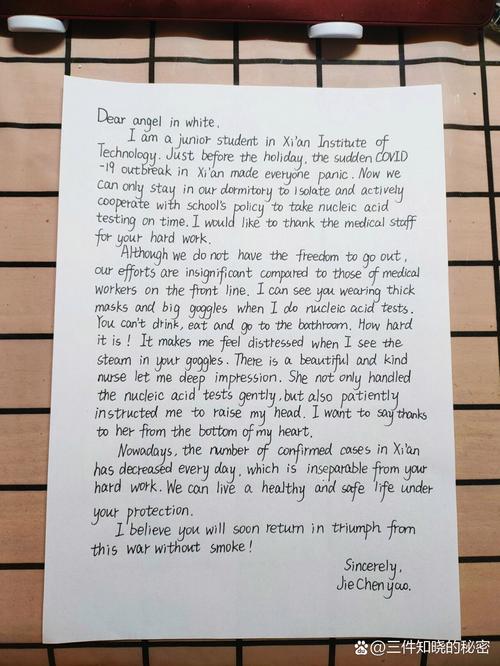 Dear angel in white,
I am a junior student in Xi'an Institute of
Technology. Just before the holiday, the sudden COVID
-19 outbreak in Xi'an made everyone panic. Now we
can only stay in our dormitory to isolate and actively
cooperate with school's policy to take nucleic acid
testing on time. I would like to thank the medical staff
for your hard work.
Although we do not have the freedom to go out,
our efforts are insignificant compared to those of medical
workers on the front line. I can see you wearing thick
masks and big goggles when I do nucleic acid tests.
You can't drink, eat and go to the bathroom. How hard
it is! It makes me feel distressed when I see the
steam in your goggles. There is a beautiful and kind
nurse let me deep impression. She not only handled
the nucleic acid tests gently, but also patiently
instructed me to raise my head. I want to say thanks
to her from the bottom of my heart.
Nowadays, the number of confirmed cases in Xi'an
has decreased every day, which is inseparable from your
hard work. We can live a healthy and safe life under
your protection.
I believe you will soon return in triumph from
this war without smoke!
Sincerely,
Jie Chen yao.
@三件知晓的秘密